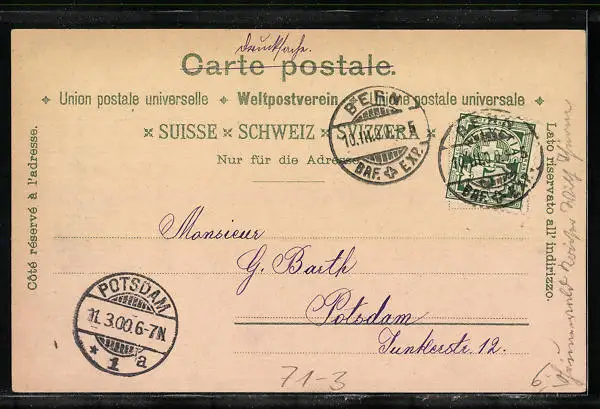 Drucksache.
Carte postale.
Union postale universelle Weltpostverein Unione postale universale
SUISSE SCHWEIZ SVIZZERA
Nur für die Adresse
Côté réservé à l'adresse.
Lato riservato all' indirizzo.
BERN
10.III.00.
BRF. EXP.
BERN
BRF. EXP.
Monsieur
G. Barth
Potsdam
Junkerstr. 12.
POTSDAM
11.3.00.6-7N.
* 1 a
71-3